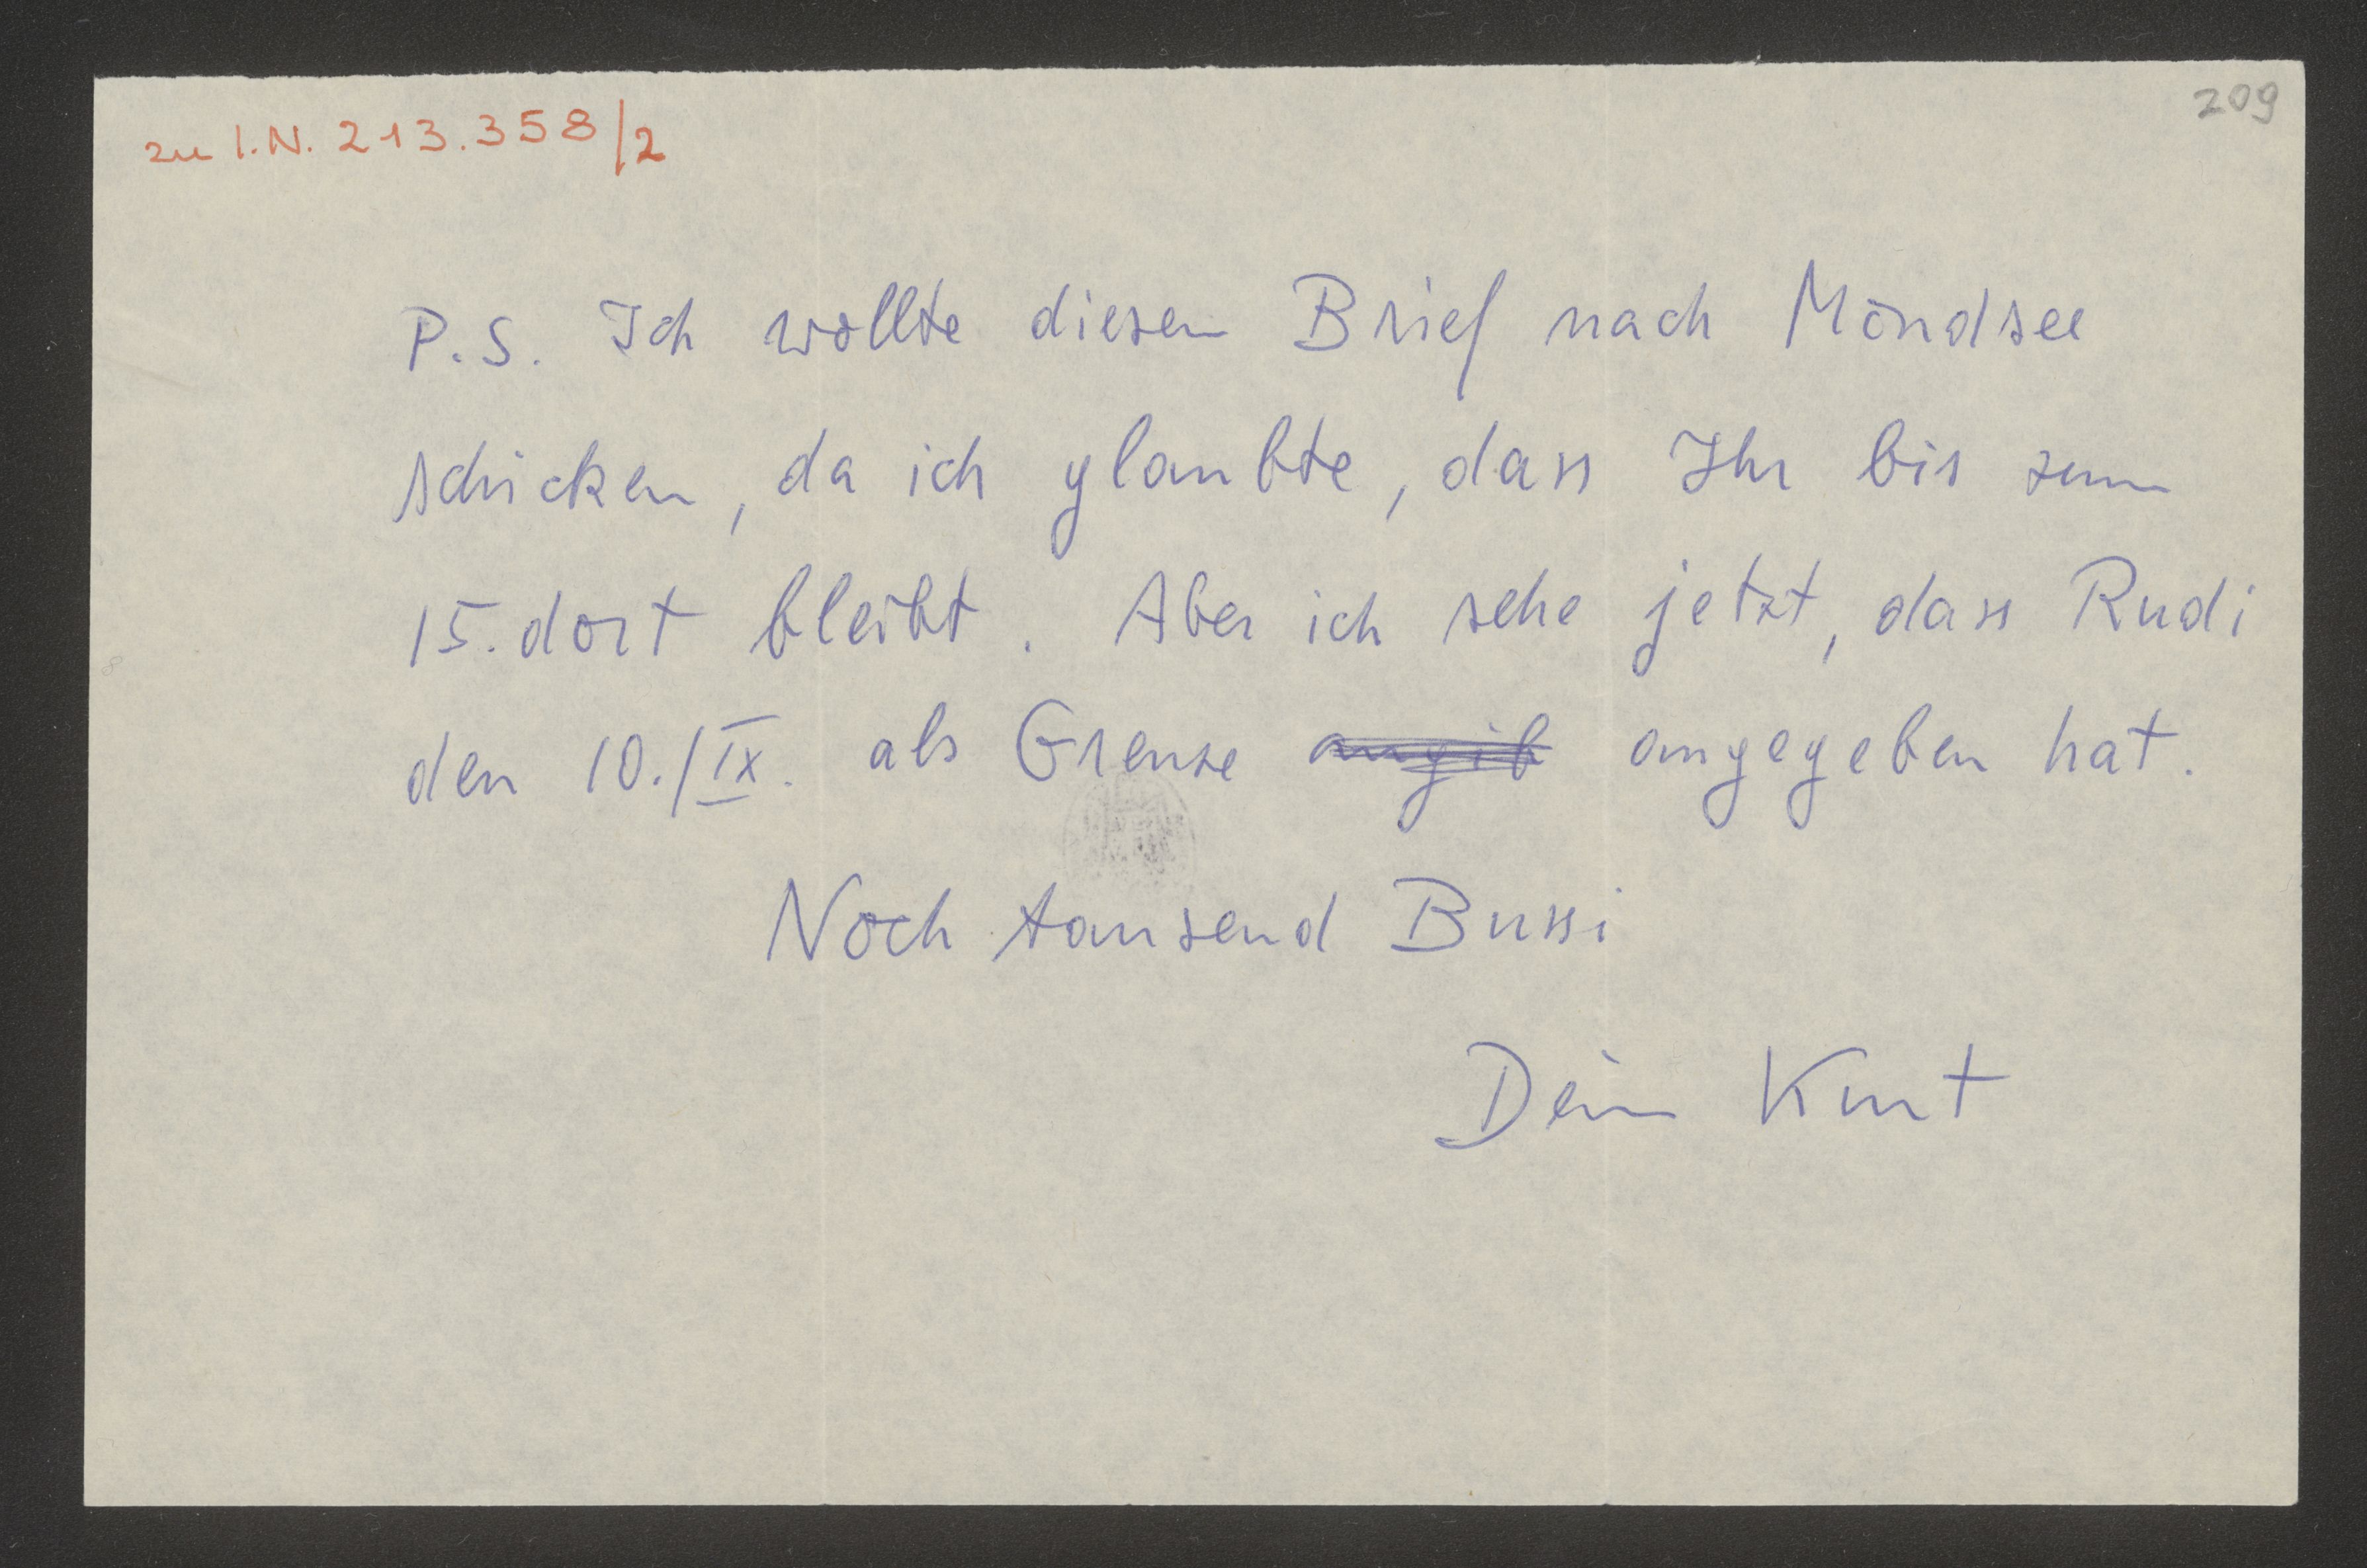 zu I.N. 213.358/2
209
P.S. Ich wollte diesen Brief nach Mondsee
schicken, da ich glaubte, dass Ihr bis zum
15. dort bleibt. Aber ich sehe jetzt, dass Rudi
den 10./IX. als Grenze angib angegeben hat.
Noch tausend Bussi
Dein Kurt